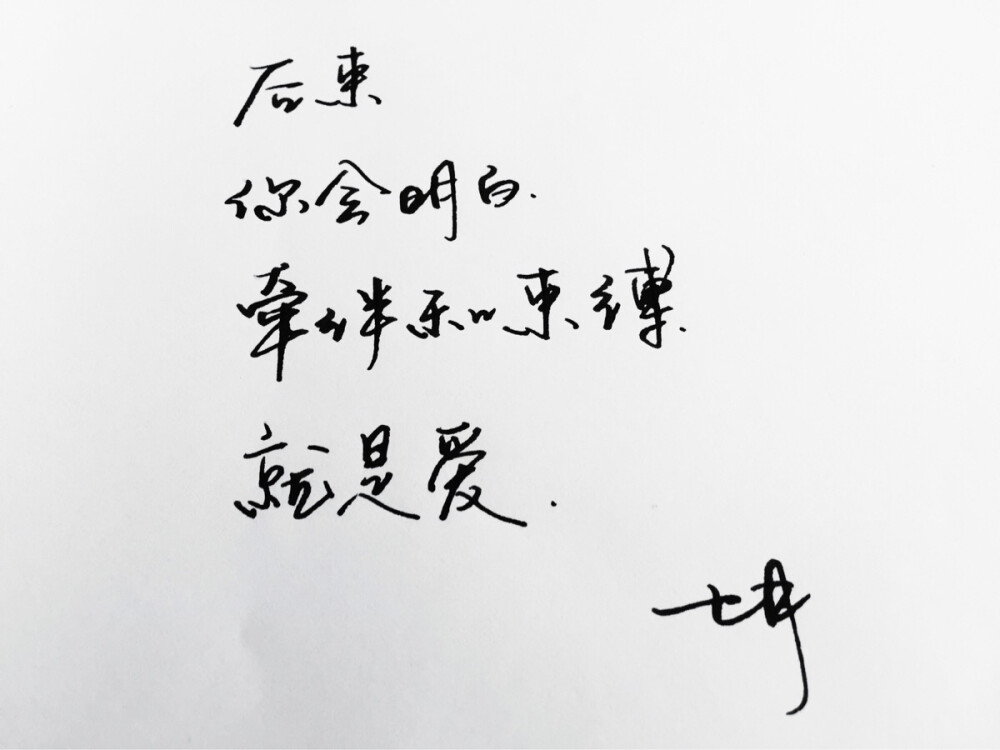 后来
你会明白.
牵绊和束缚.
就是爱.
七井